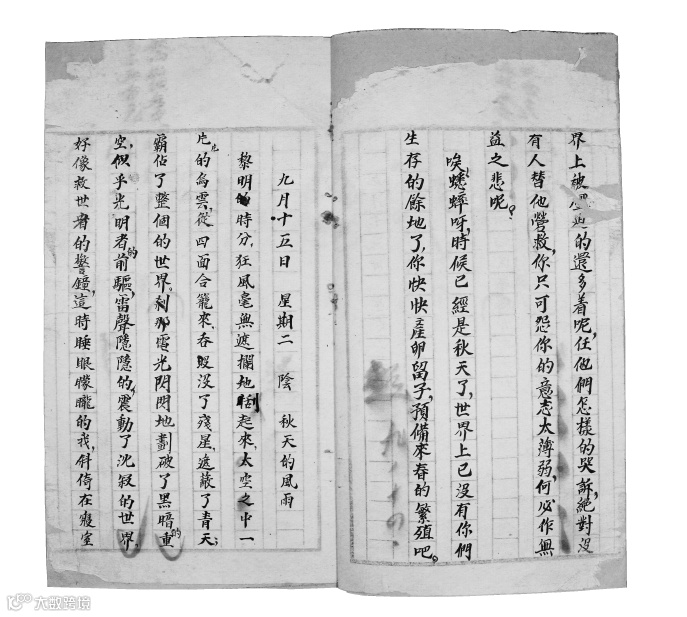 界上被的還多着呢,任他們怎樣的哭訴,絕對沒
有人替他營救,你只可怨你的意志太薄弱,何必作無
益之悲呢?
唉!蟋蟀呀,時候已經是秋天了,世界上已沒有你們
生存的餘地了,你快快產卵留子,預備來春的繁殖吧。
九月十五日 星期二 陰 秋天的風雨
黎明的時分,狂風毫無遮攔地颳起來,太空之中一
片片的烏雲,從四面合籠來,吞沒了殘星,遮蔽了青天;
霸佔了整個的世界。剎那電光閃閃地劃破了黑暗的重
空,似乎光明者的前驅,雷聲隱隱的,震動了沈寂的世界,
好像救世者的警鐘,這時睡眼朦朧的我,斜倚在寢室
大数跨境